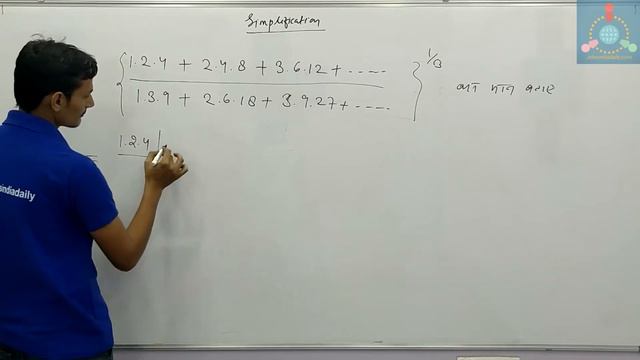 Simplification
{ 1.2.4 + 2.4.8 + 3.6.12 + ..... / 1.3.9 + 2.6.18 + 3.9.27 + ..... }^1/3 का मान बताएं
1.2.4
indiadaily